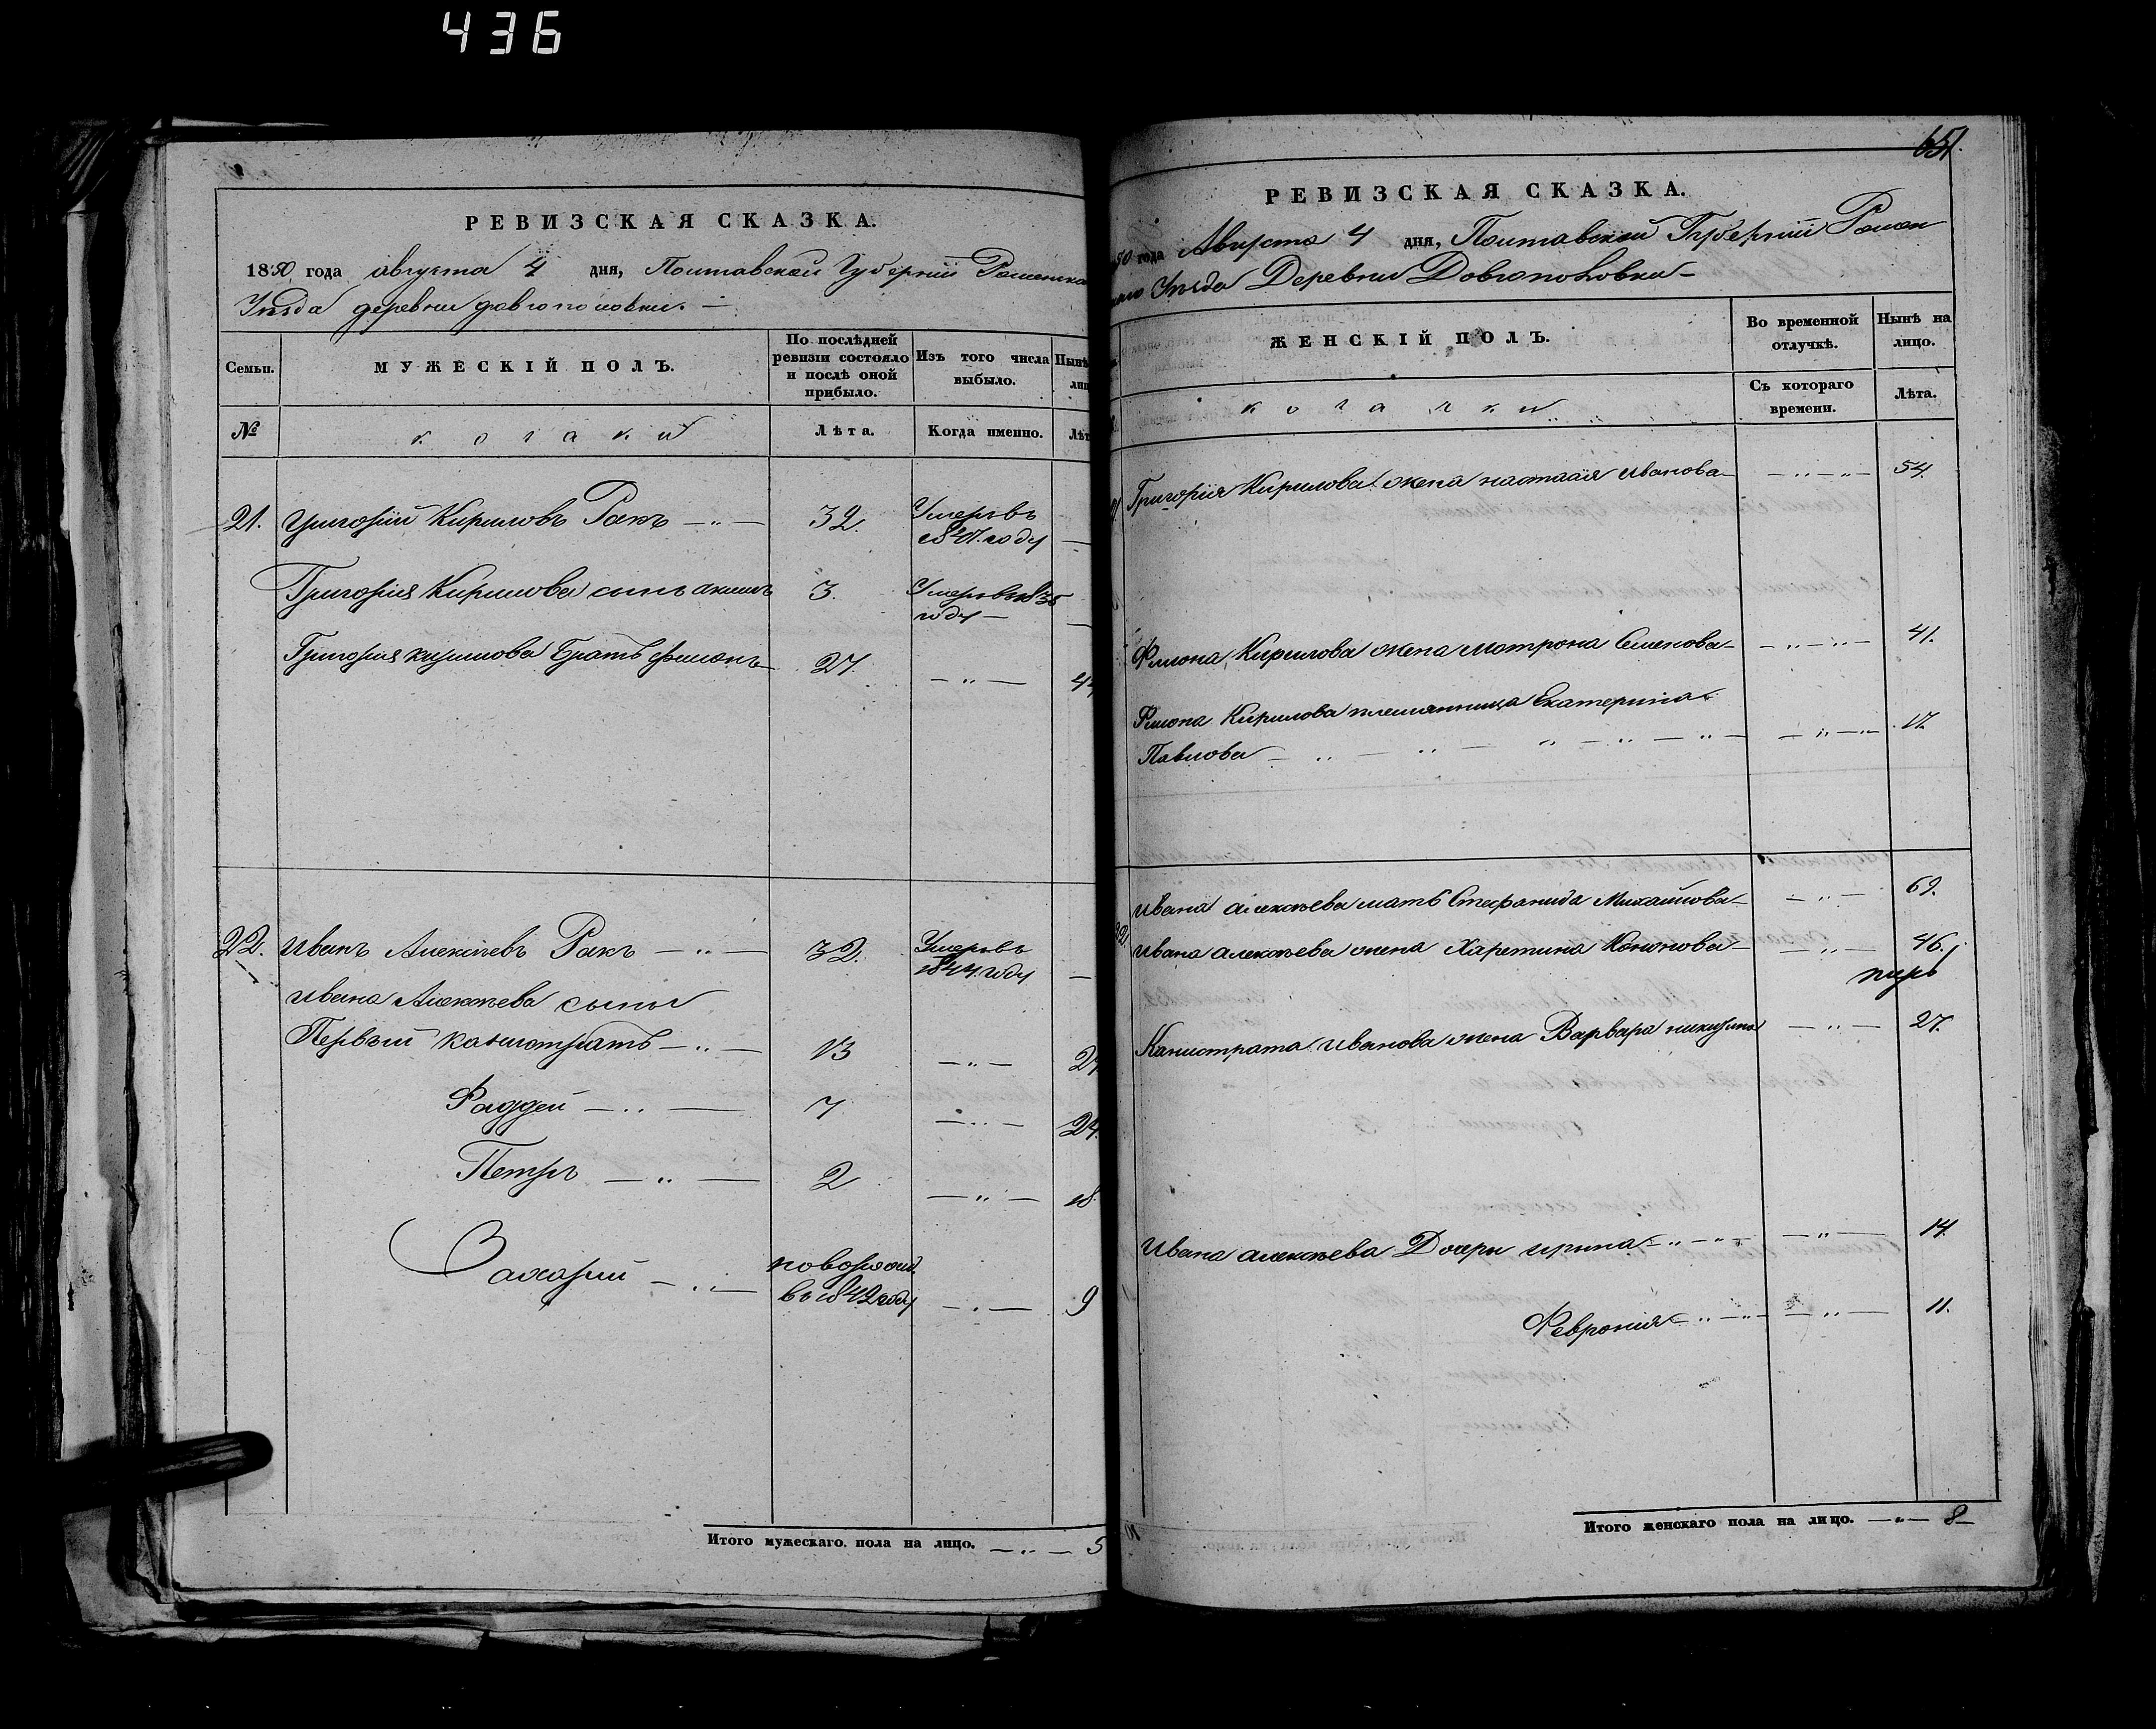 436
РЕВИЗСКАЯ СКАЗКА.
1850 года августа 4 дня, Полтавской Губернии Роменска
Уезда деревни Довгополовки. —
Семьи.
МУЖЕСКІЙ ПОЛЪ.
По послѣдней ревизіи состояло и послѣ оной прибыло.
Изъ того числа выбыло.
Нынѣ
№
козаки
Лѣта.
Когда именно.
Лѣт
21. Григорій Кириловъ Ракъ — „ — 32. Умеръ въ
1847. году —
Григорія Кирилова сынъ акимъ 3. Умеръ въ 1836
году —
Григорія Кирилова Братъ филонъ 27. — „ — 44
22. Иванъ Алексѣевъ Ракъ — „ — 32. Умеръ въ
1844. году —
Ивана Алексѣева сыны
Первый Калистратъ — „ — 13 — „ — 27
Фаддей — „ — 7 — „ — 24.
Петръ — „ — 2 — „ — 18.
Захарій — „ — новорожд.
въ 1842 году — „ — 9
Итого мужескаго. пола на лицо. — „ — 5
651.
РЕВИЗСКАЯ СКАЗКА.
50 года Августа 4 дня, Полтавской Губерніи Ромен
Уезда Деревни Довгополовки —
ЖЕНСКІЙ ПОЛЪ.
Во временной отлучкѣ.
Нынѣ на лицо.
козачки
Съ котораго времени.
Лѣта.
Григорія Кирилова жена настасія Иванова — — „ — „ — 54.
Филона Кирилова жена матрона Семенова — — „ — „ — 41.
Филона Кирилова племянница Екатерина
Павлова — „ — „ — „ — „ — „ — — „ — „ — 17.
22. Ивана алексѣева мать Стефанида Михайлова — — „ — 69.
Ивана алексѣева жена Харетина Кононова — — „ — 46.
Калистрата Иванова жена Варвара никитина — „ — 27.
Ивана алексѣева Дочери ирина — „ — „ — — „ — 14.
Феврония — „ — „ — — „ — 11.
Итого женскаго пола на лицо. — „ — 8 —